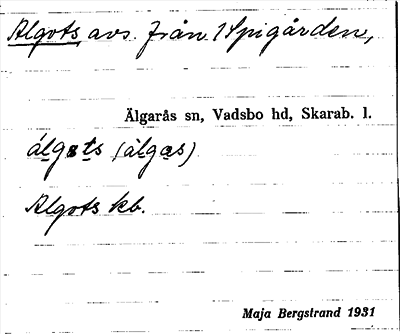 Algots avs. från 1 Spigården,
Älgarås sn, Vadsbo hd, Skarab. l.
álgots (àlgas)
Algots kb.
Maja Bergstrand 1931